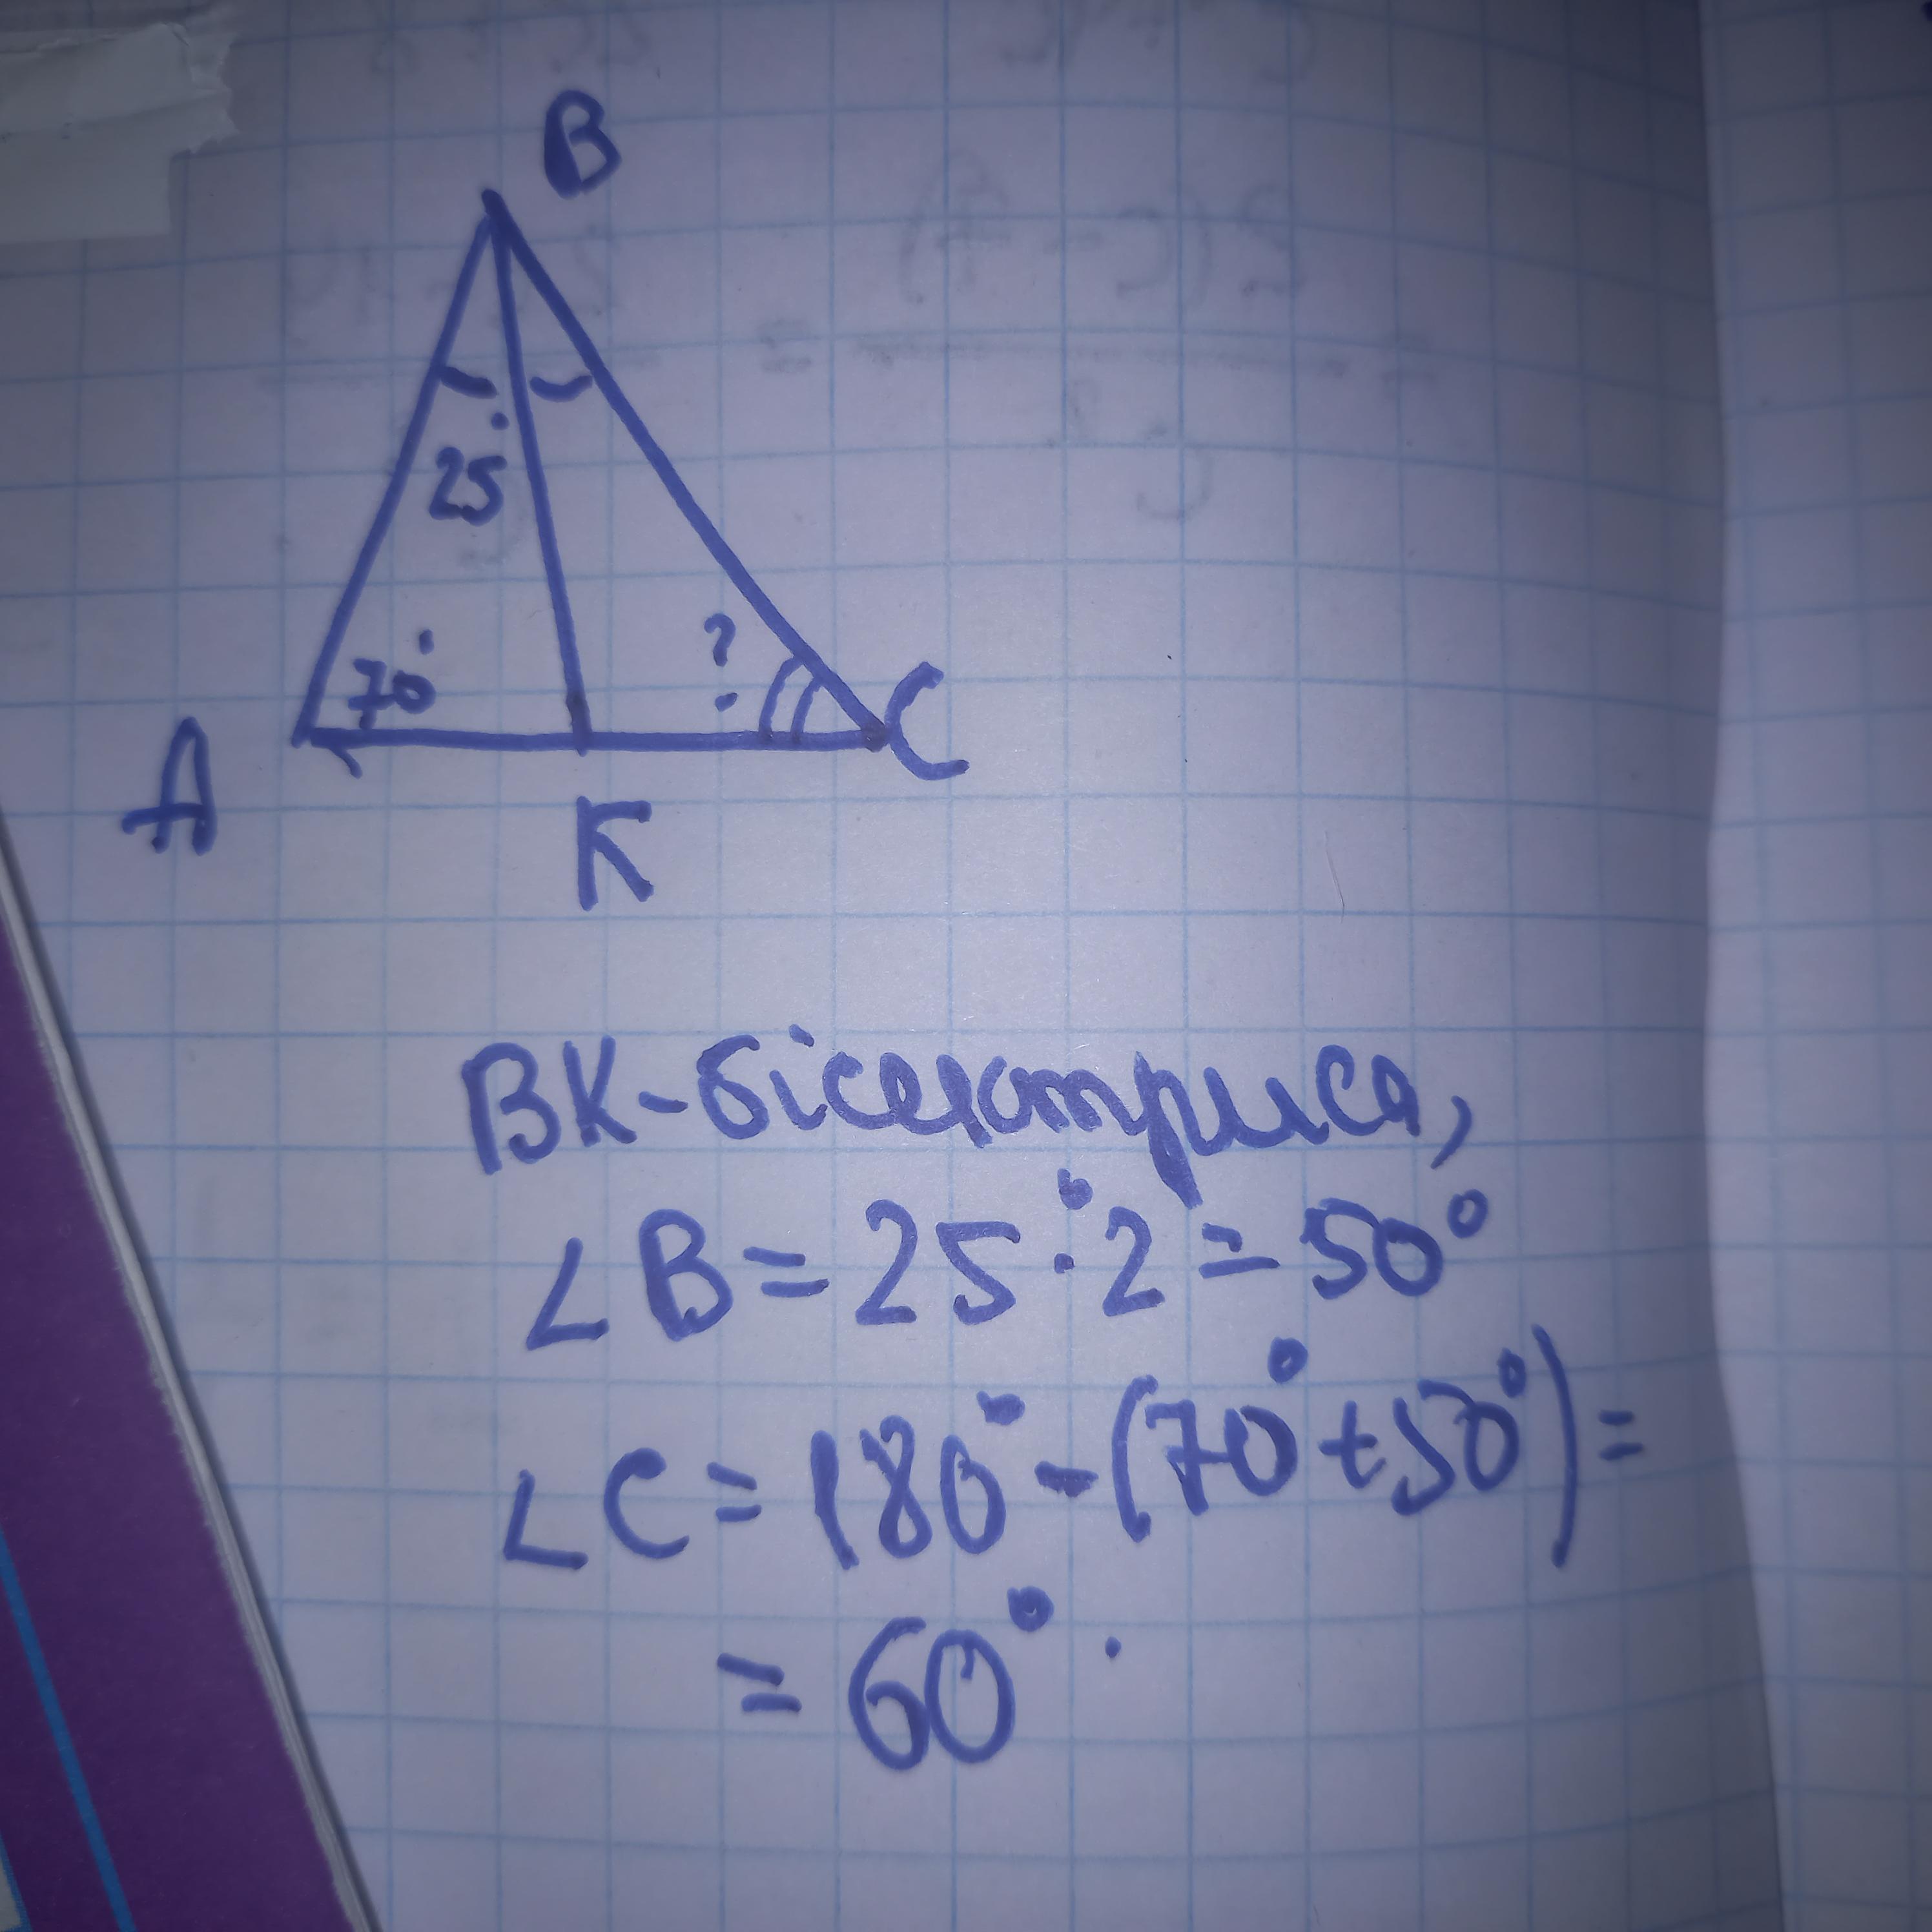 B
25°
70°
?
A
C
K
BK-бісектриса,
∠B=25°·2=50°
∠C=180°-(70°+50°)=
=60°.